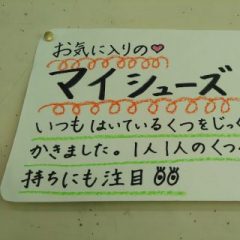 お気に入りの♥
マイシューズ
いつもはいているくつをじっく
かきました。1人1人のくつ
持ちにも注目